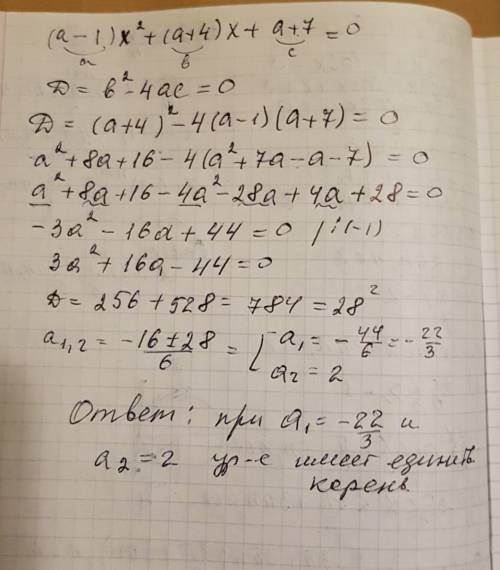 (a-1)x²+(a+4)x+a+7=0
a в c
D = в²-4ac=0
D = (a+4)²-4(a-1)(a+7)=0
a²+8a+16-4(a²+7a-a-7)=0
a²+8a+16-4a²-28a+4a+28=0
-3a²-16a+44=0 /:(-1)
3a²+16a-44=0
D = 256+528=784=28²
a₁,₂ = -16±28/6 = [ a₁=-44/6=-22/3
a₂=2
Ответ: при a₁=-22/3 и
a₂=2 ур-е имеет единств
корень